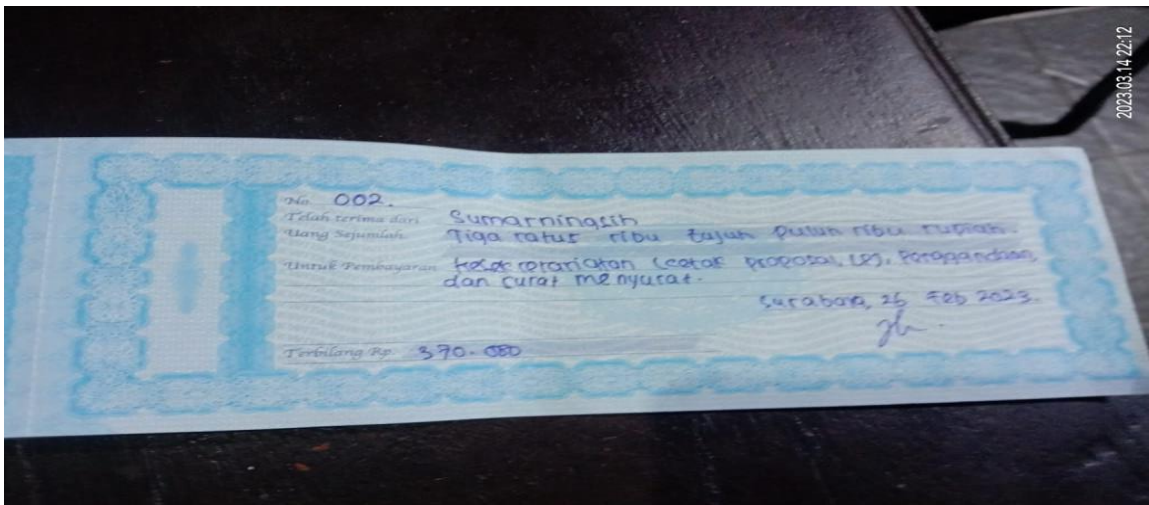 2023.03.14 22:12
No. 002.
Telah terima dari Sumarningsih
Uang Sejumlah Tiga ratus ribu tujuh puluh ribu rupiah.
Untuk Pembayaran kesekretariatan (cetak proposal, LPJ, Penggandaan,
dan surat menyurat.
Surabaya, 26 Feb 2023.
Terbilang Rp. 370.000